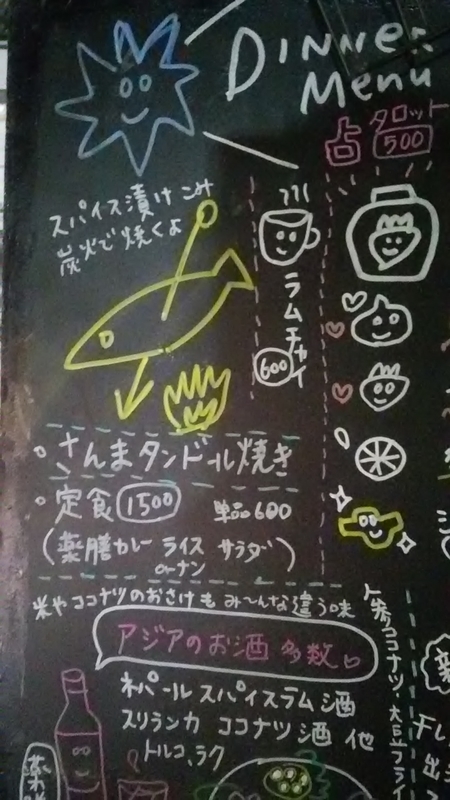 Dinner
Menu
占 タロット
500
スパイス漬けこみ
炭火で焼くよ
ラムチャイ
600
さんまタンドール焼き
定食 1500 単品600
(薬膳カレー ライス サラダ)
orナン
米やココナツのおさけも み〜んな違う味
アジアのお酒 多数
ネパール スパイスラム酒
スリランカ ココナツ酒 他
トルコ、ラク
ココナツ・大豆フライ
薬